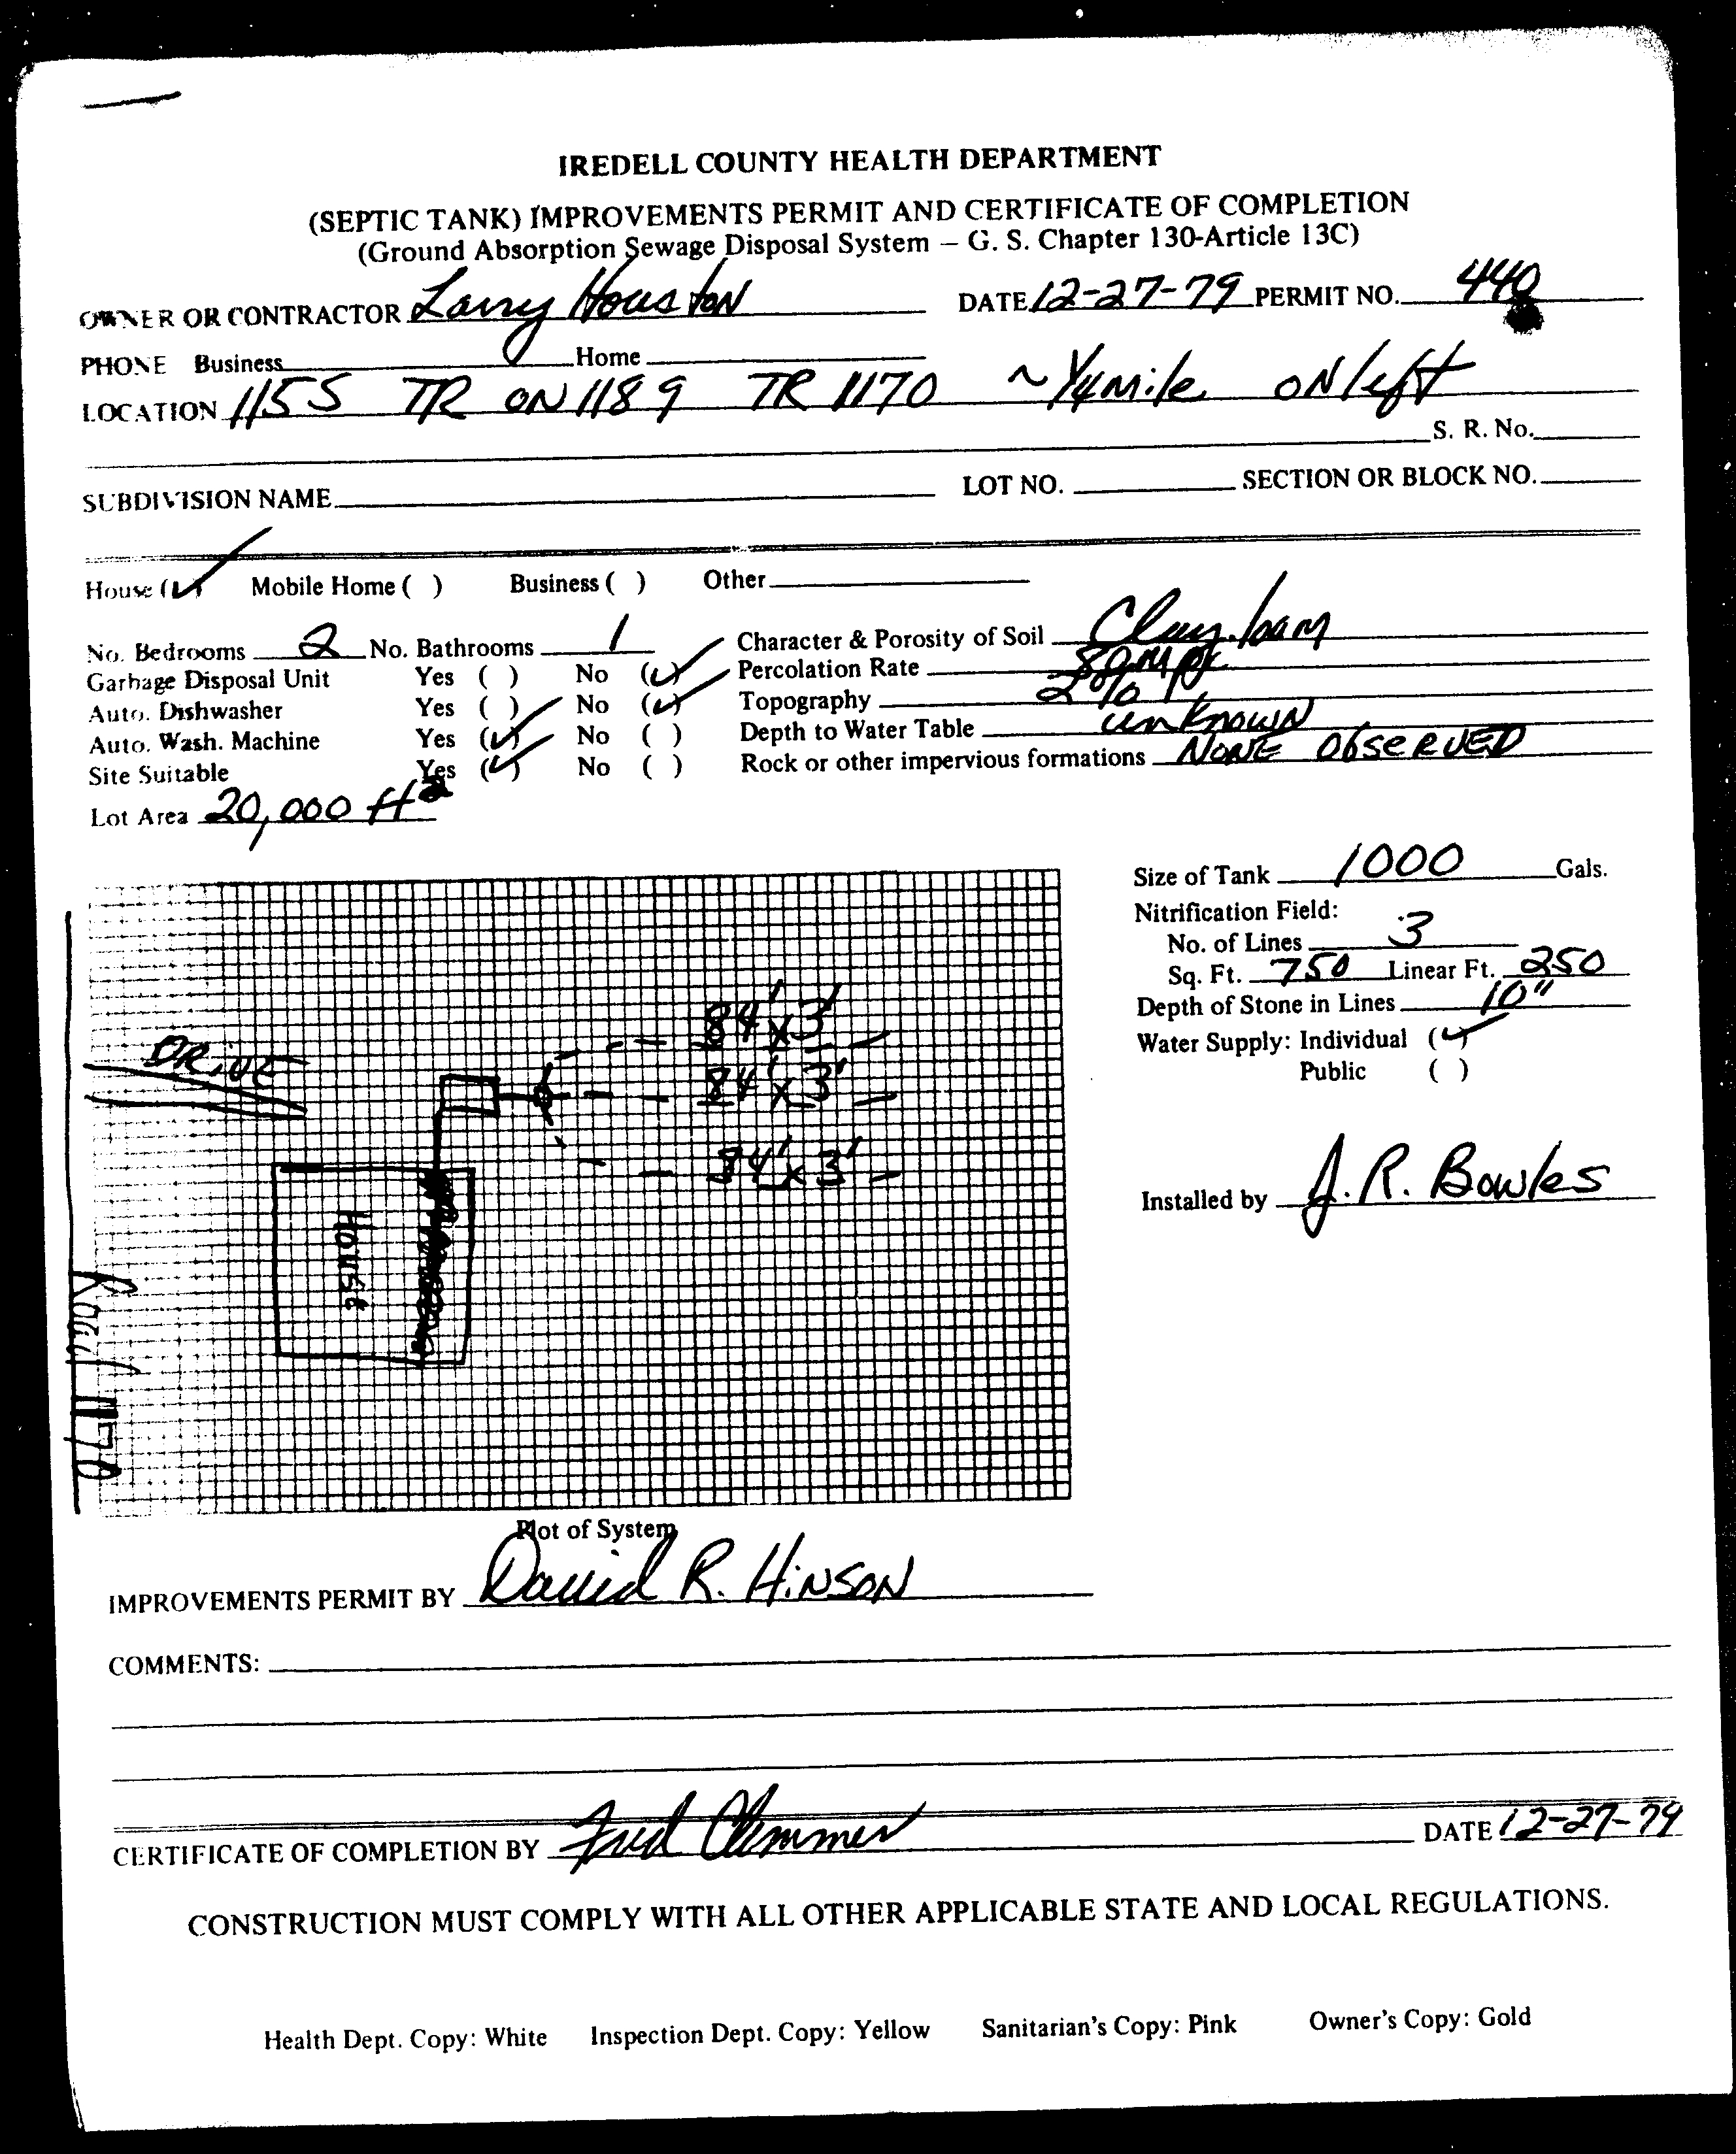 IREDELL COUNTY HEALTH DEPARTMENT
(SEPTIC TANK) IMPROVEMENTS PERMIT AND CERTIFICATE OF COMPLETION
(Ground Absorption Sewage Disposal System – G. S. Chapter 130-Article 13C)
OWNER OR CONTRACTOR Larry Houston DATE 12-27-79 PERMIT NO. 440
PHONE Business Home
LOCATION 1155 TR ON 1189 TR 1170 ~ 1/4 Mile ON left
S. R. No.
SUBDIVISION NAME LOT NO. SECTION OR BLOCK NO.
House (✓) Mobile Home ( ) Business ( ) Other
No. Bedrooms 2 No. Bathrooms 1 Character & Porosity of Soil Clay-loam
Garbage Disposal Unit Yes ( ) No (✓) Percolation Rate 80 mpi
Auto. Dishwasher Yes ( ) No (✓) Topography 2%
Auto. Wash. Machine Yes (✓) No ( ) Depth to Water Table unknown
Site Suitable Yes (✓) No ( ) Rock or other impervious formations NONE ObSERVED
Lot Area 20,000 ft²
Size of Tank 1000 Gals.
Nitrification Field:
No. of Lines 3
Sq. Ft. 750 Linear Ft. 250
Depth of Stone in Lines 10"
Water Supply: Individual (✓)
Public ( )
Installed by J. R. Bowles
84' x 3'
DRiVE
84' x 3'
84' x 3'
House
Road 1170
Plot of System
IMPROVEMENTS PERMIT BY David R. HiNSON
COMMENTS:
CERTIFICATE OF COMPLETION BY Fred Clemmer DATE 12-27-79
CONSTRUCTION MUST COMPLY WITH ALL OTHER APPLICABLE STATE AND LOCAL REGULATIONS.
Health Dept. Copy: White Inspection Dept. Copy: Yellow Sanitarian's Copy: Pink Owner's Copy: Gold